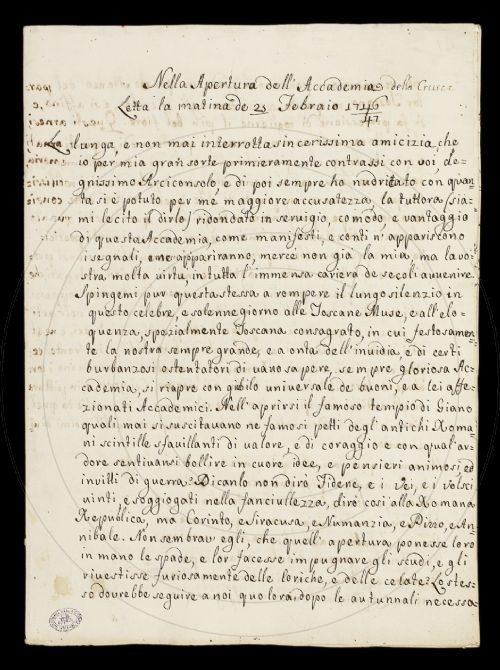 Nella Apertura dell'Accademia della Crusca
Letta la matina de 21 Febraio 1746
47
La lunga, e non mai interrotta sincerissima amicizia, che
io per mia gran sorte primieramente contrassi con voi, de=
gnissimo Arciconsolo, e di poi sempre ho nudritato con quan=
ta si è potuto per me maggiore accusatezza, la tuttora (sia=
mi lecito il dirlo) ridondato in servigio, comodo, e vantaggio
di questa Accademia, come manifesti, e conti n'appariscono
i segnali, e ne appariranno, merce non già la mia, ma la vo=
stra molta virtù, in tutta l'immensa cariera de secoli avvenire.
Spingemi pur questa stessa a rompere il lungo silenzio in
questo celebre, e solenne giorno alle Toscane Muse, e all'elo=
quenza, spezialmente Toscana consagrato, in cui festosamen=
te la nostra sempre grande, e a onta dell'invidia, e di certi
burbanzosi ostentatori di vano sapere, sempre gloriosa Ac=
cademia, si riapre con giubilo universale de buoni, e a lei affe=
zionati Accademici. Nell'aprirsi il famoso tempio di Giano
quali mai si suscitavano ne famosi petti degl'antichi Roma=
ni scintille sfavillanti di valore, e di coraggio e con qual'ar=
dore sentivansi bollire in cuore idee, e pensieri animosi ed
invitti di guerra? Dicanlo non dirò Fidene, e i Vei, e i Volsci
vinti, e soggiogati nella fanciullezza, dirò così alla Romana
Republica, ma Corinto, e Siracusa, e Numanzia, e Pirro, e An=
nibale. Non sembrava egli, che quell'apertura ponesse loro
in mano le spade, e lor facesse impugnare gli scudi, e gli
rivestisse furiosamente delle loriche, e delle celate? Lo stes=
so dovrebbe seguire a noi quo lora, dopo le autunnali necessa=